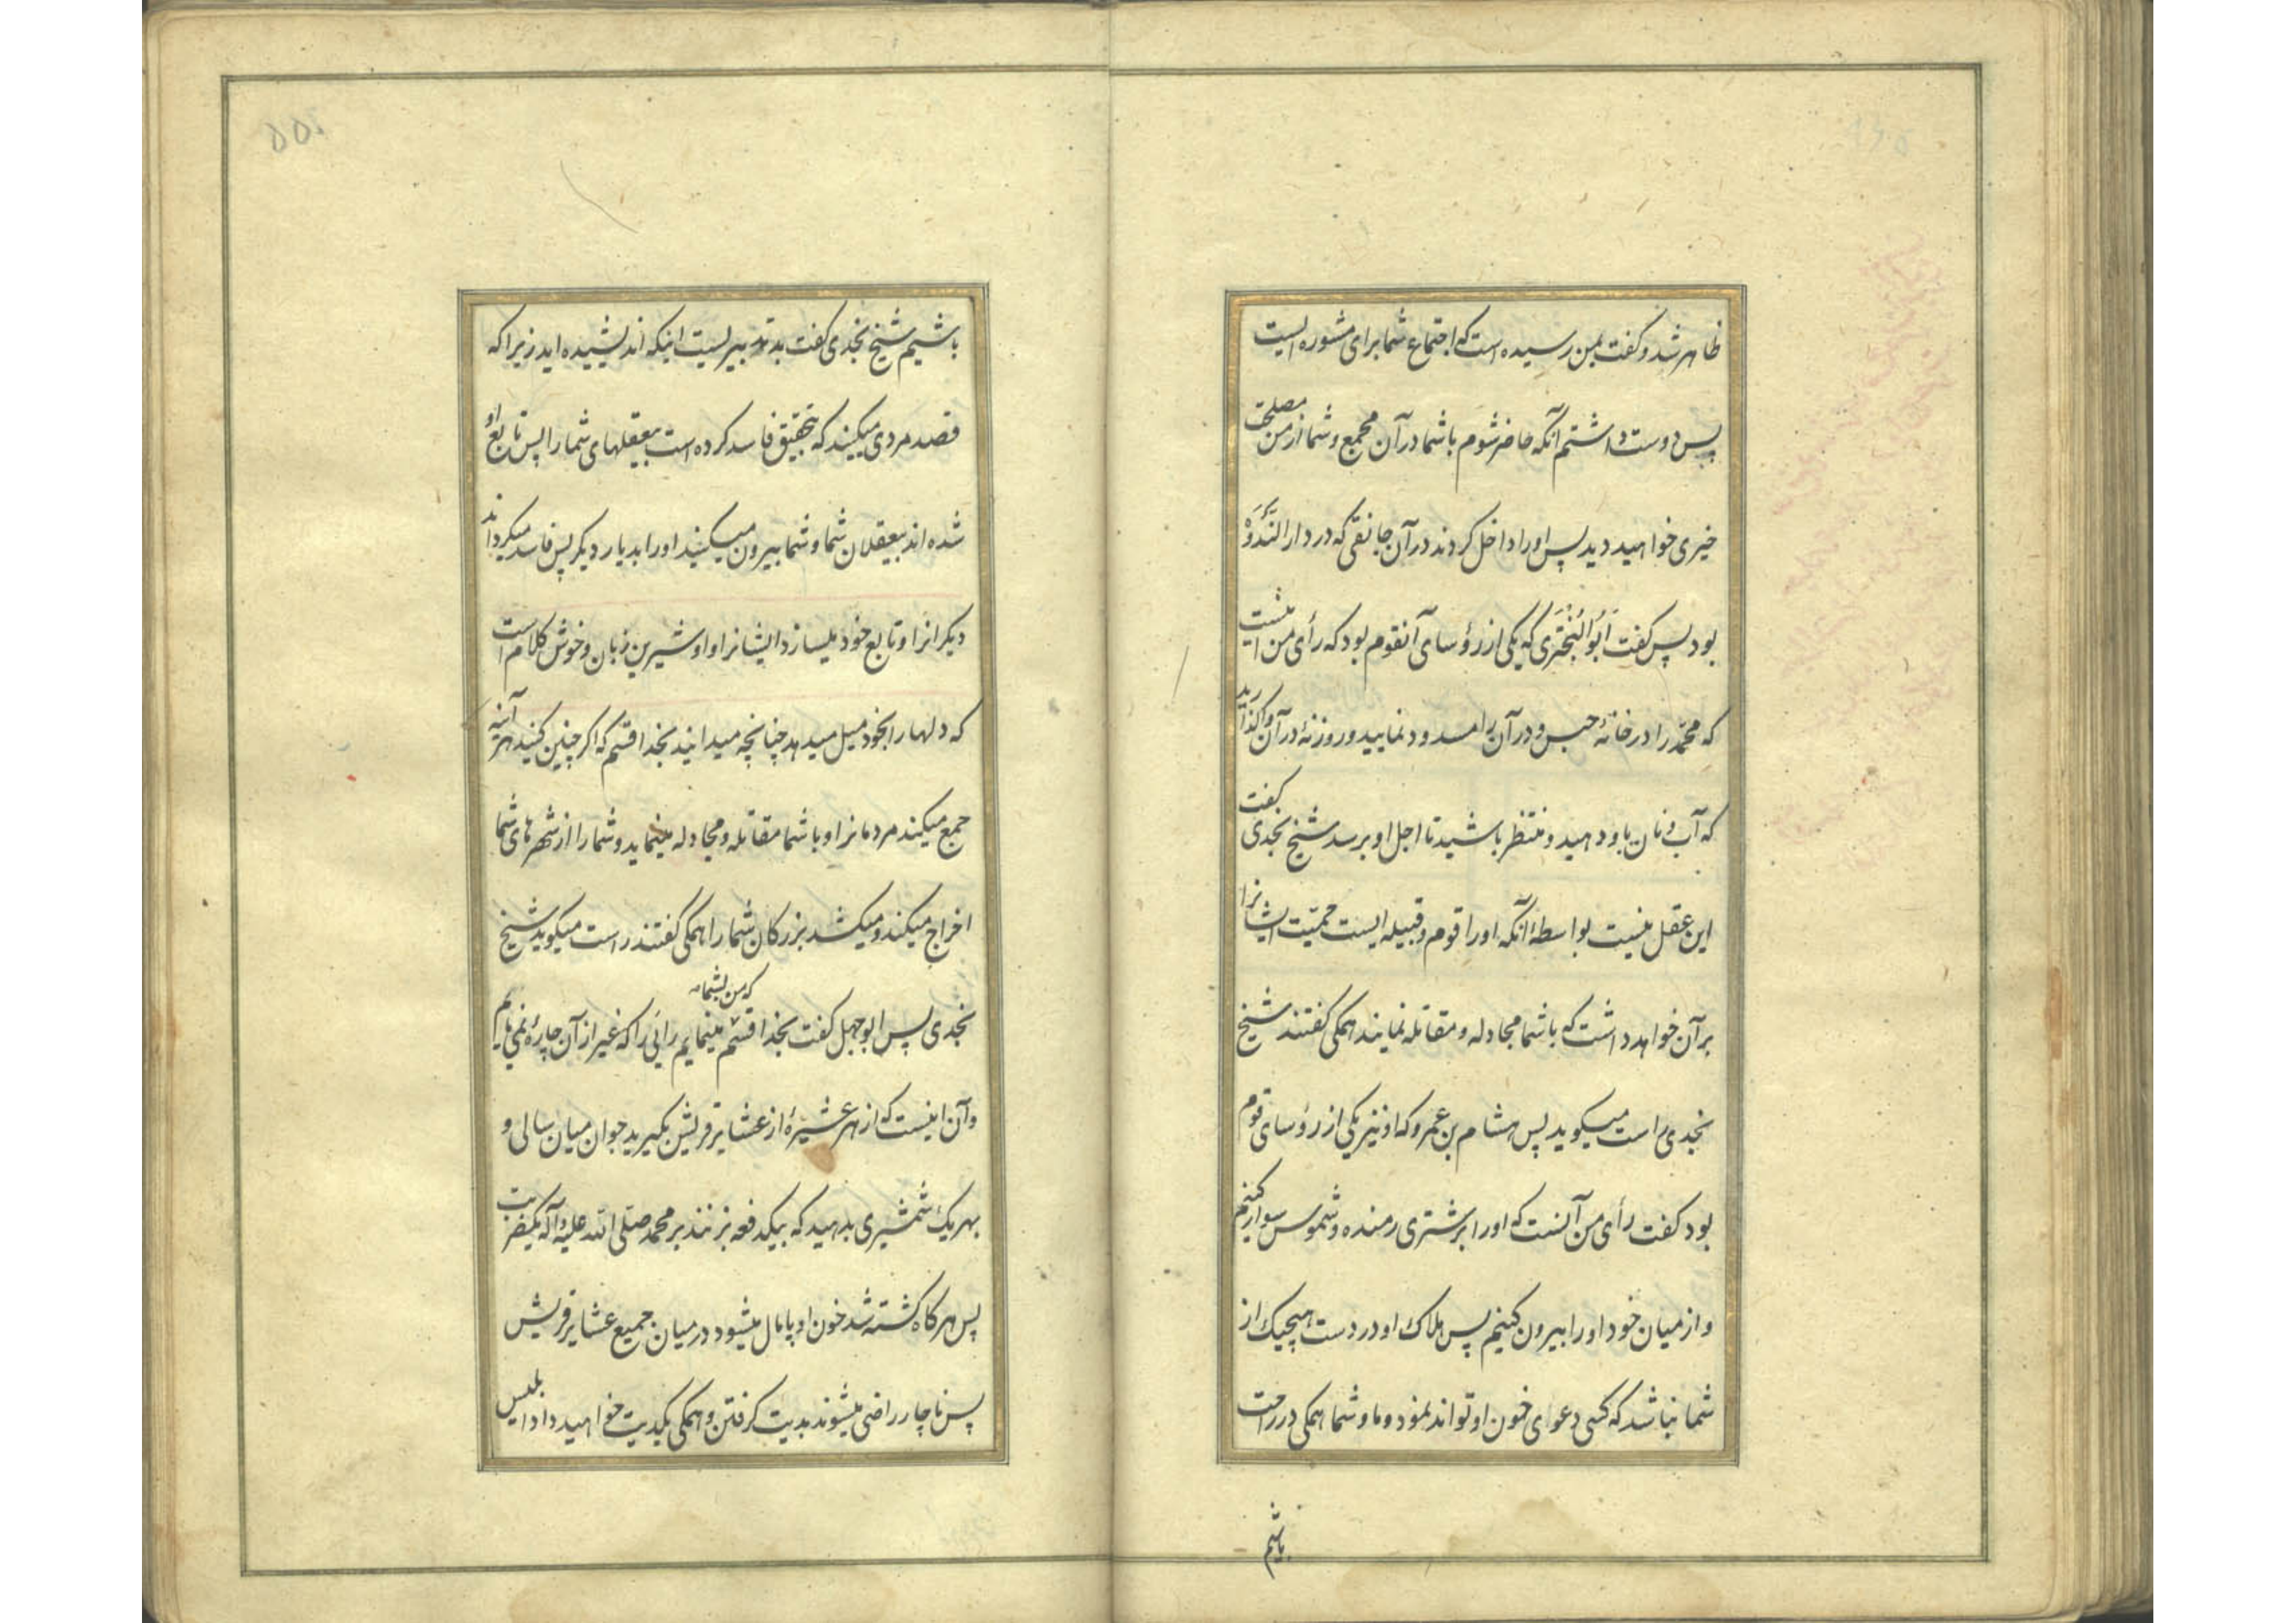 ظاهر شد و کفت بمن رسیده است که اجتماع شما برای مشوره ایست
پس دوست داشتم آنکه حاضر شوم باشما در آن مجمع و شما از من مصلحت
خیری خواهید دید پس او را داخل کردند در آن جانقی که در دار النَّدْوَة
بود پس کفت اَبُو البَخْتَری که یکی از رؤسای آنقوم بود که رأی من اینست
که محمّد را در خانهٔ حبس و در آن را مسدود نمایید و روزنهٔ در آن واکذارید
که آب و نان باو دهید و منتظر باشید تا اجل او برسد شیخ نجدی کفت
این عقل نیست بواسطهٔ آنکه او را قوم و قبیله ایست حمیّت ایشانرا
بر آن خواهد داشت که باشما مجادله و مقاتله نمایند همکی کفتند شیخ
نجدی راست میکوید پس هشام بن عمرو که او نیز یکی از رؤسای قوم
بود کفت رأی من آنست که او را بر شتری رمنده و شموس سوار کنیم
و از میان خود او را بیرون کنیم پس هلاک او در دست هیچیک از
شما نباشد که کسی دعوای خون او تواند نمود و ما و شما همکی در راحت
باشیم
۵۵۰
باشیم شیخ نجدی کفت بد تدبیریست اینکه اندیشیده اید زیرا که
قصد مردی میکنید که بتحقیق فاسد کرده است بیعقلهای شما را پس تابع او
شده اند بیعقلان شما و شما بیرون میکنید او را بدیار دیکر پس فاسد میکرداند
دیکرانرا و تابع خود میسازد ایشانرا و او شیرین زبان و خوش کلام است
که دلها را بخود میل میدهد چنانچه میدانید بخدا قسم که اکر چنین کنید هر آینه
جمع میکند مردمانرا و باشما مقاتله و مجادله مینماید و شما را از شهرهای شما
اخراج میکند و میکشد بزرکان شما را همکی کفتند راست میکوید شیخ
که من بشما
نجدی پس ابوجهل کفت بخدا قسم مینمایم رائی را که غیر از آن چارهٔ نمی یابم
و آن اینست که از هر عشیرهٔ از عشایر قریش بکیرید جوان میان سالی و
بهر یک شمشیری بدهید که بیکدفعه بزنند بر محمد صلّی الله علیه و آله یکضربت
پس هرکاه کشته شد خون او پامال میشود در میان جمیع عشایر قریش
پس ناچار راضی میشوند بدیت کرفتن و همکی یکدیت خواهید داد ابلیس